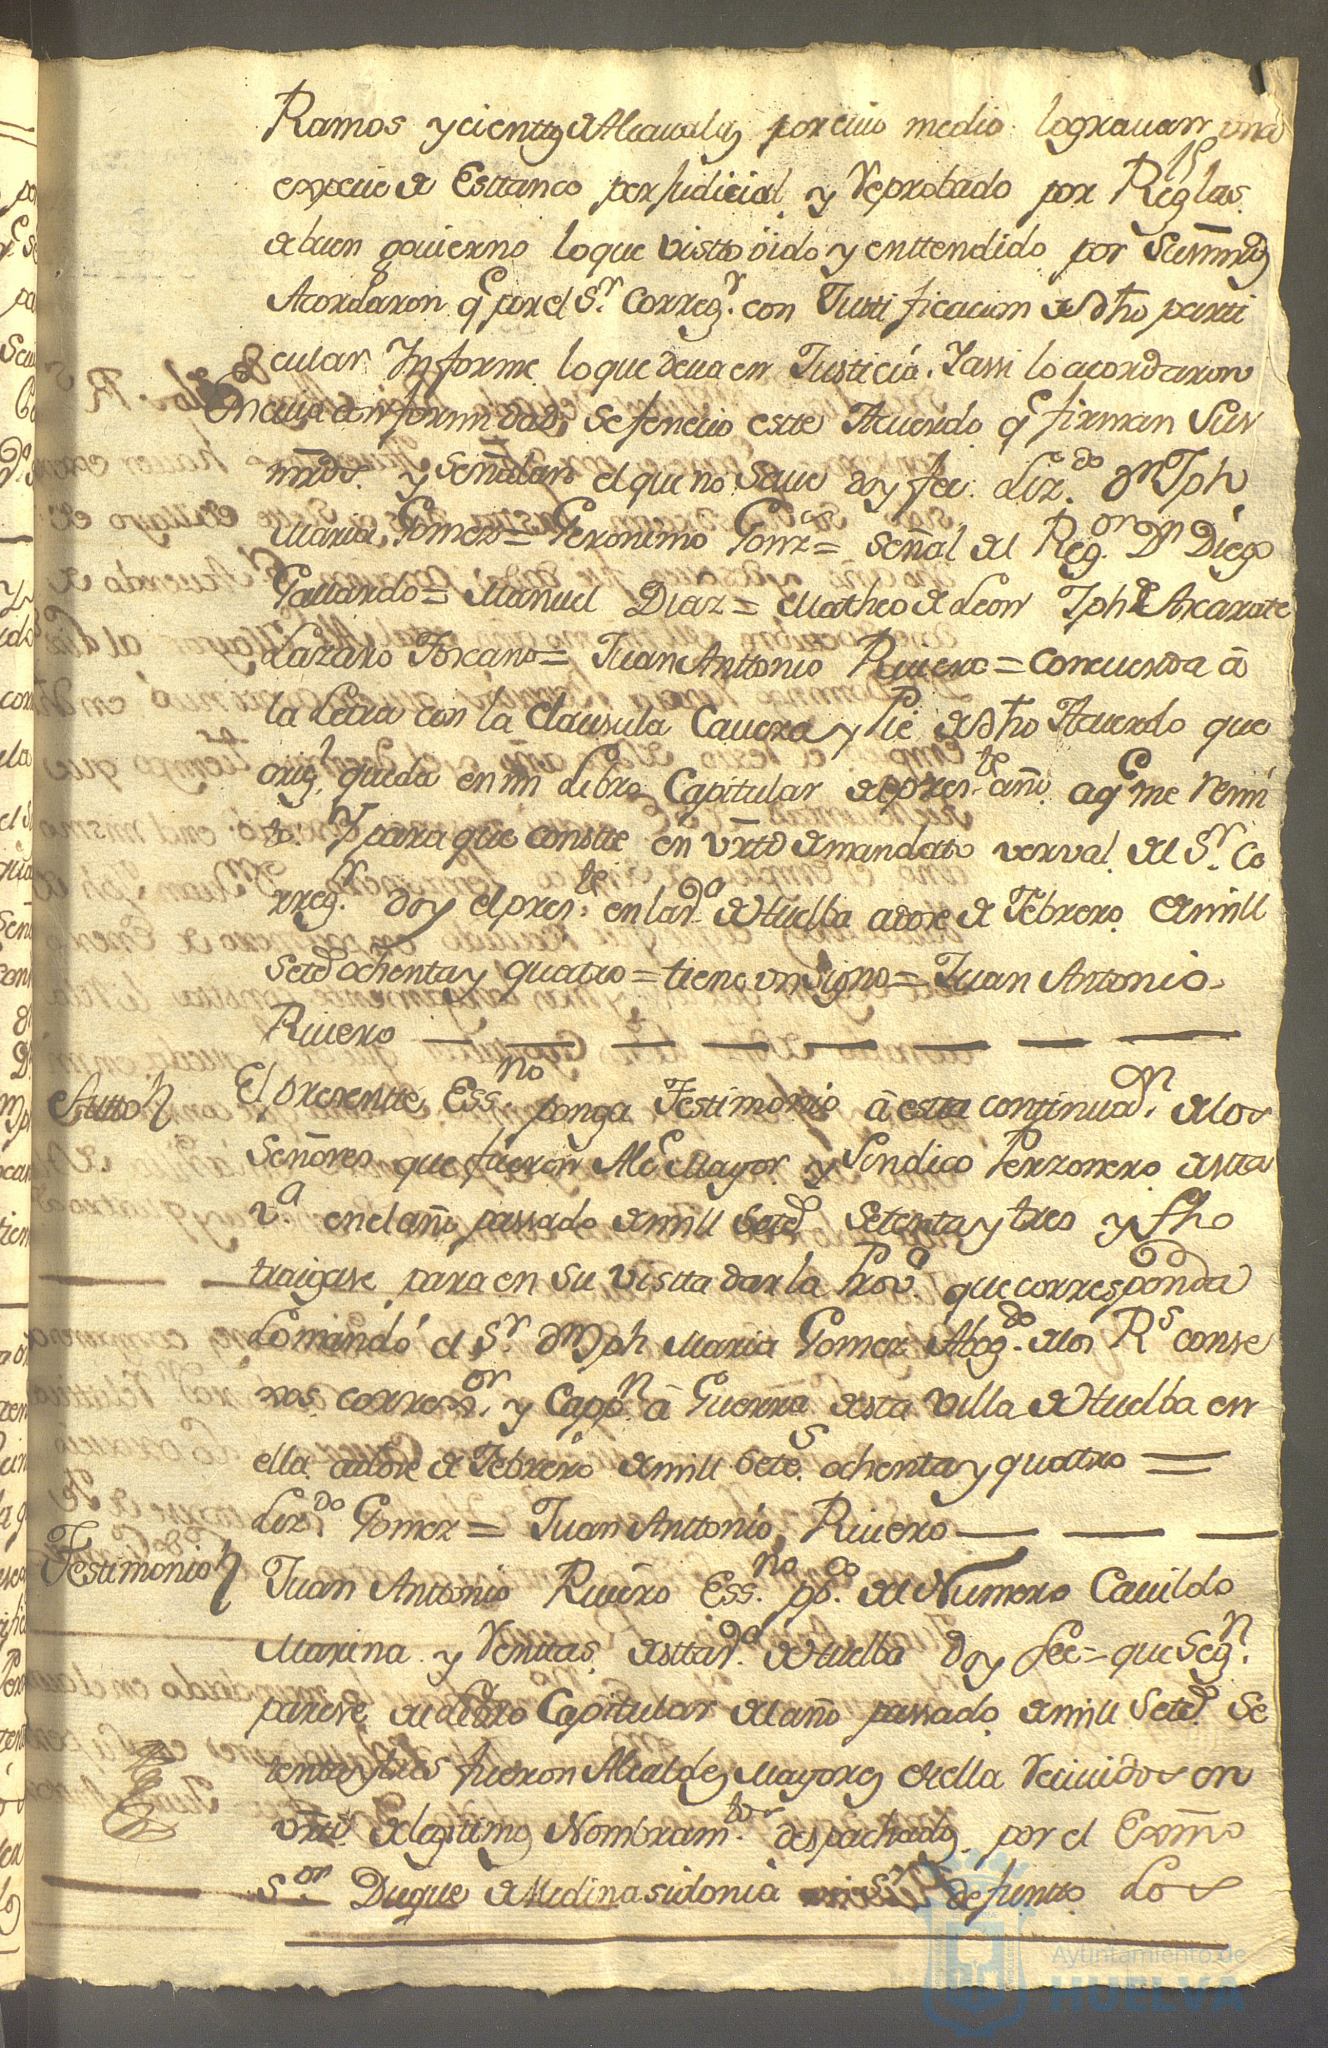 Ramos y cientos de Alcaualas por cuio medio lograuan una
15
expecie de Esttanco perjudicial y Reprobado por Reglas
de buen govierno lo que vistto oido y enttendido por sus mrds
Acordaron q.e por el S.r Correg.r con Justtificacion de dho partti
cular Ynforme lo que deua en Justicia. Yassi lo acordaron
En cuia conformidad, se fenecio estte Acuerdo q.e firman Sus
mrds. y señalan el que no saue doy fee. Liz.do Dn Jph
Maria Gomez = Geronimo Gonz.s = señal del Reg.or Dn Diego
Gallardo = Manuel Diaz = Matheo de Leon Jph de Ancarate
Lazaro Toscano = Juan Anttonio Riuero = Concuerda â
la Letra con la Clausula Caueza y Pie de dho Acuerdo que
orig.l queda en mi Libro Capitular del pres.te año aq.e me remi
to. Y para que constte en vrtd de mandato verval del S.r Co
rreg.r doy el pres.te en la v.a de Huelba a doze de Febrero de mill
seted ochenta y quatro = tiene un signo = Juan Antonio
Riuero
Autto
El presentte Ess.no ponga Testimonio â esta continuaz.n de los
Señores que fueron Alc.e Mayor y Sindico Perzonero de estta
v.a en el año passado de mill seted setenta y tres y fho
traigase para en su vistta dar la Prov.a que corresponda
Lo mandó el S.r Dn Jph Maria Gomez Abog.do de los R.s conse
xos corres.or y Capp.n â Guerra de sta Villa de Huelba en
ella a doze de Febrero de mill Sete.s ochenta y quattro =
Liz.do Gomez = Juan Anttonio Riuero
Testimonio
Juan Antonio Riuero Ess.no pp.co del Numero Cauildo
Marina y Renttas de estta v.a de Huelba Doy fee = que seg.n
parese del Libro Capitular del año passado de mill Seted Se
tenta y tres fueron Alcaldes Mayores de ella Reciuidos en
vrtd. de legitimos Nombram.tos despachados por el Exmo
S.or Duque de Medinasidonia defuntto Los
Ayuntamiento de
HUELVA